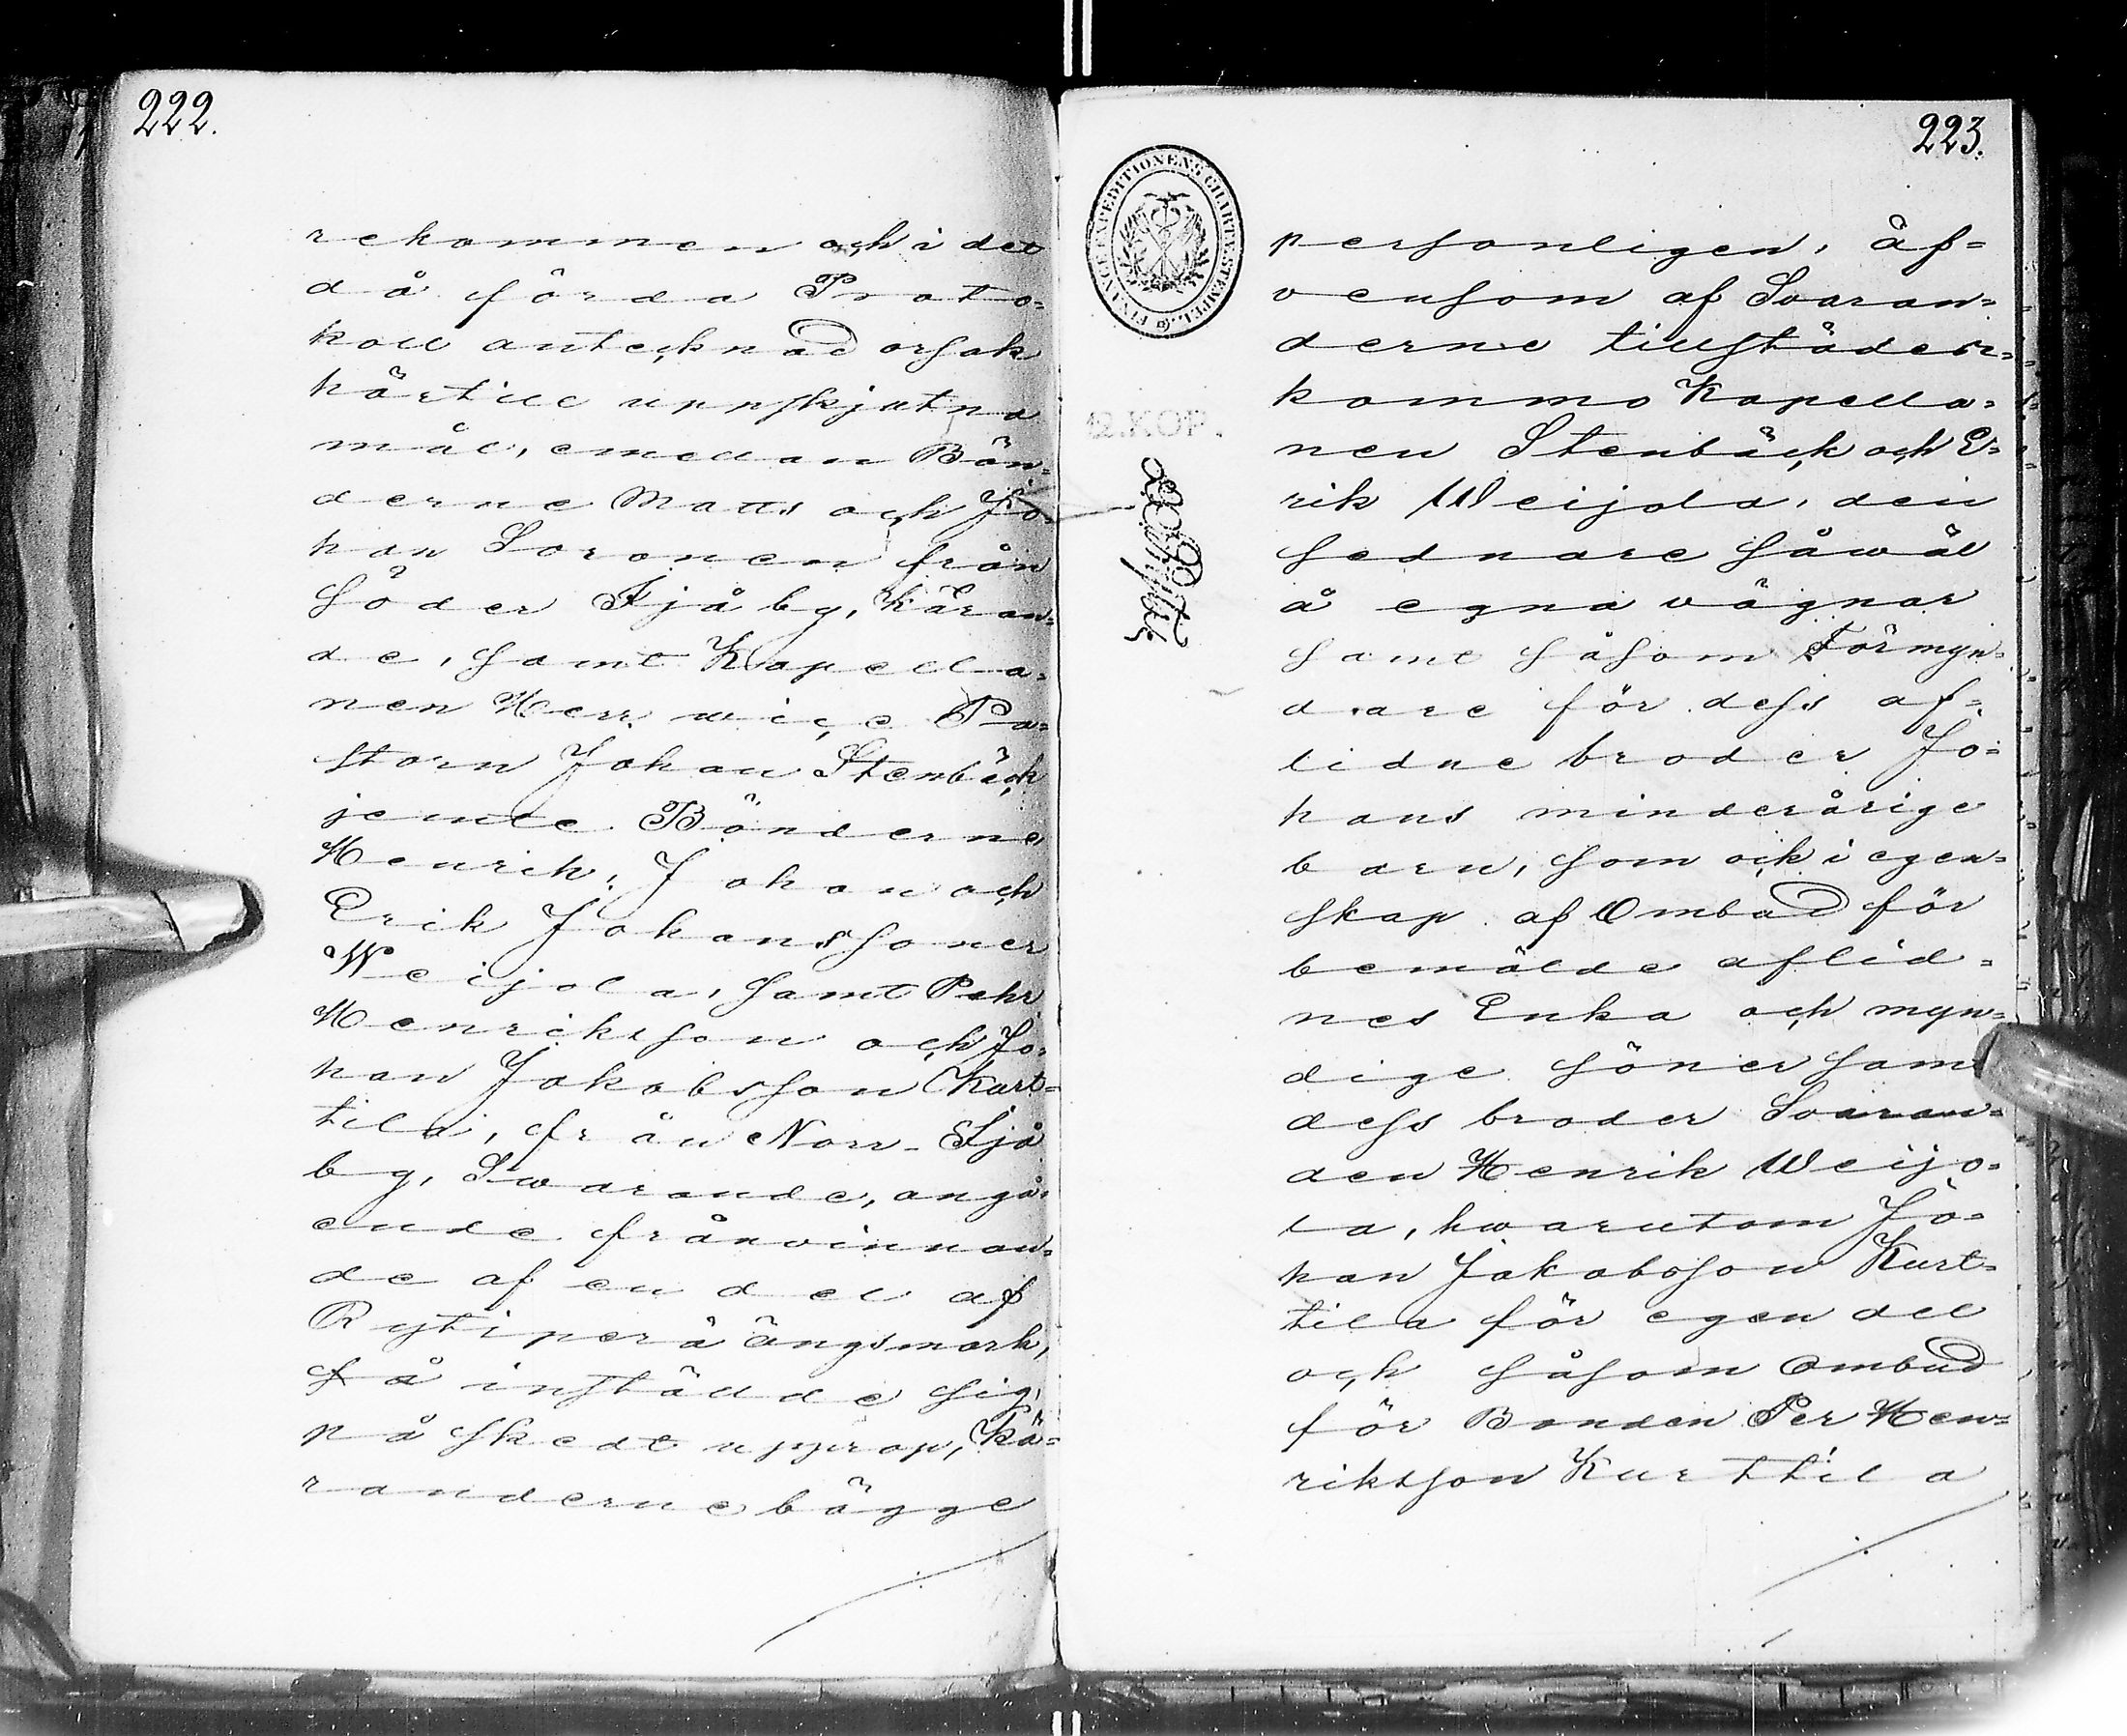 222.
rekommen och i det
då förda Proto-
koll antecknad orsak
härtill uppskjutna
mål, emellan Bön-
derne Matts och Jo-
han Soronen från
Söder Sjåby, Käran-
de, samt Kapella-
nen Herr wice Pa-
storn Johan Stenbäck
jemte Bönderne
Henrik, Johan och
Erik Johanssoner
Weijola, samt Pehr
Henriksson och Jo-
han Jakobsson Kurt-
tila, från Norr-Sjå
by, Swarande, angå-
ende frånvinnan-
de af en del af
Rytiperä ängsmark,
så instälde sig,
på skedt upprop, Kä-
randerne bägge
223.
FINANCE EXPEDITIONENS CHARTÆ STEMPEL.
12. KOP.
personligen, äf-
vensom af Svaran-
derne tillstädes-
kommo Kapella-
nen Stenbäck och E-
rik Weijola, den
sednare såwäl
å egna vägnar
samt såsom Förmyn-
dare för dess af-
lidne broder Jo-
hans minderårige
barn, som ock i egen-
skap af Ombud för
bemälde aflid-
nes Enka och myn-
dige söner samt
dess broder Svaran-
den Henrik Weijo-
la, hwarutom Jo-
han Jakobsson Kurt-
tila för egen del
och såsom Ombud
för Bonden Per Hen-
riksson Kurttila